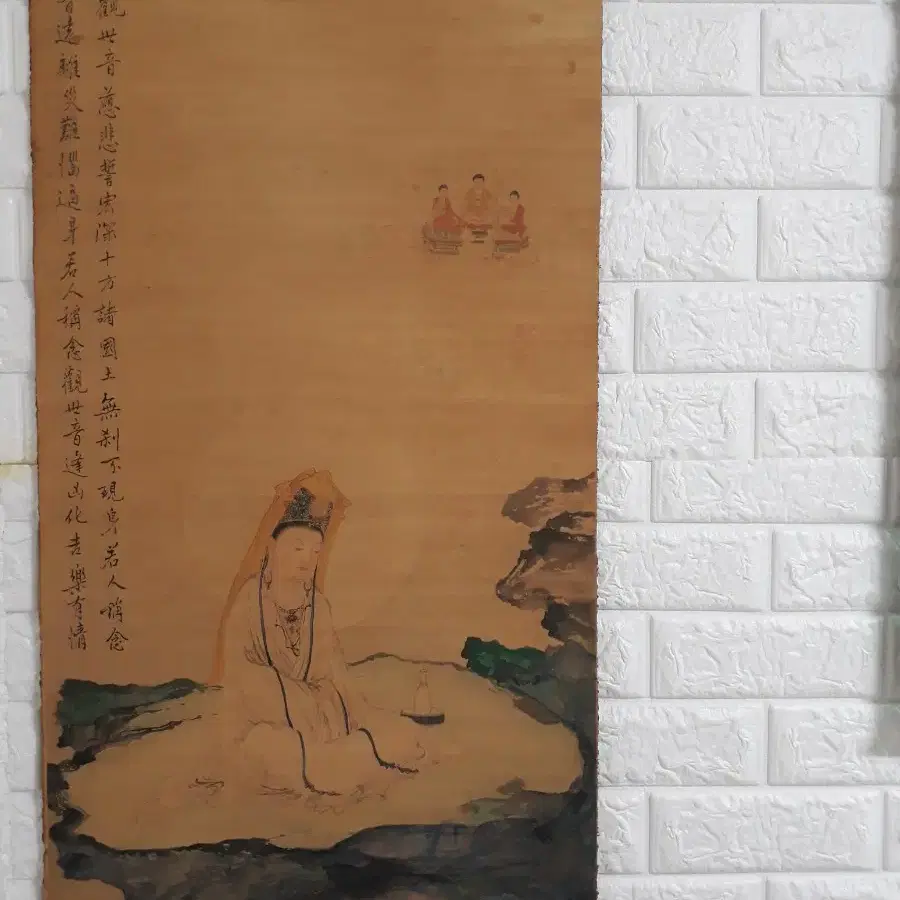 觀世音慈悲誓宏深十方諸國土無刹不現身若人稱念
遠離災難遍身若人稱念觀世音逢凶化吉樂有清